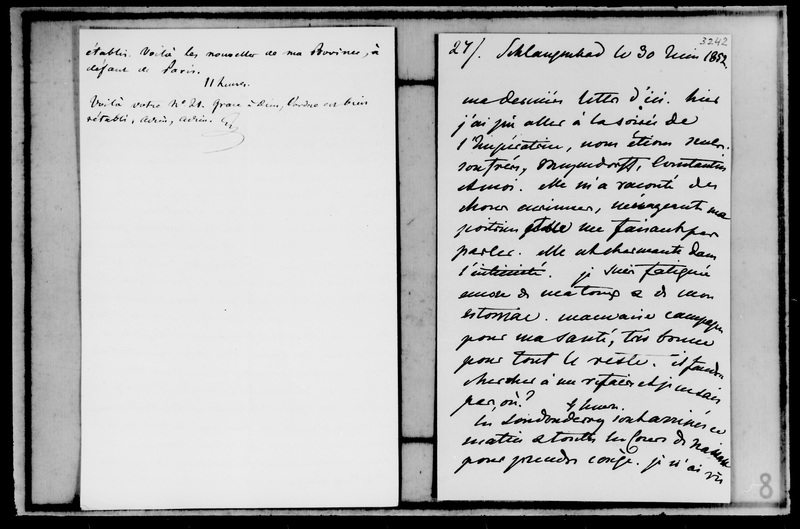 établi. Voilà les nouvelles de ma Province, à
défaut de Paris.
11 heures.
Voilà votre N° 21. Grace à Dieu, l'ordre est bien
rétabli, adieu, adieu. G
3242
27/. Schlangenbad le 30 Juin 1852.
ma dernière lettre d'ici. hier
j'ai pu aller à la soirée de
l'Impératrice, nous étions seuls.
son frère, Constantin
et moi. elle m'a raconté des
choses curieuses, ménageant ma
poitrine et ne me faisant pas
parler. elle est charmante dans
l'intimité. je suis fatiguée
encore de ma toux & de mon
estomac. mauvaise campagne
pour ma santé, très bonne
pour tout le reste. il faudra
chercher à me refaire et je ne sais
pas où?
4 heures.
les Londonderry sont arrivés ce
matin & toute la Cour de Nassau
pour prendre congé. je n'ai vu
8